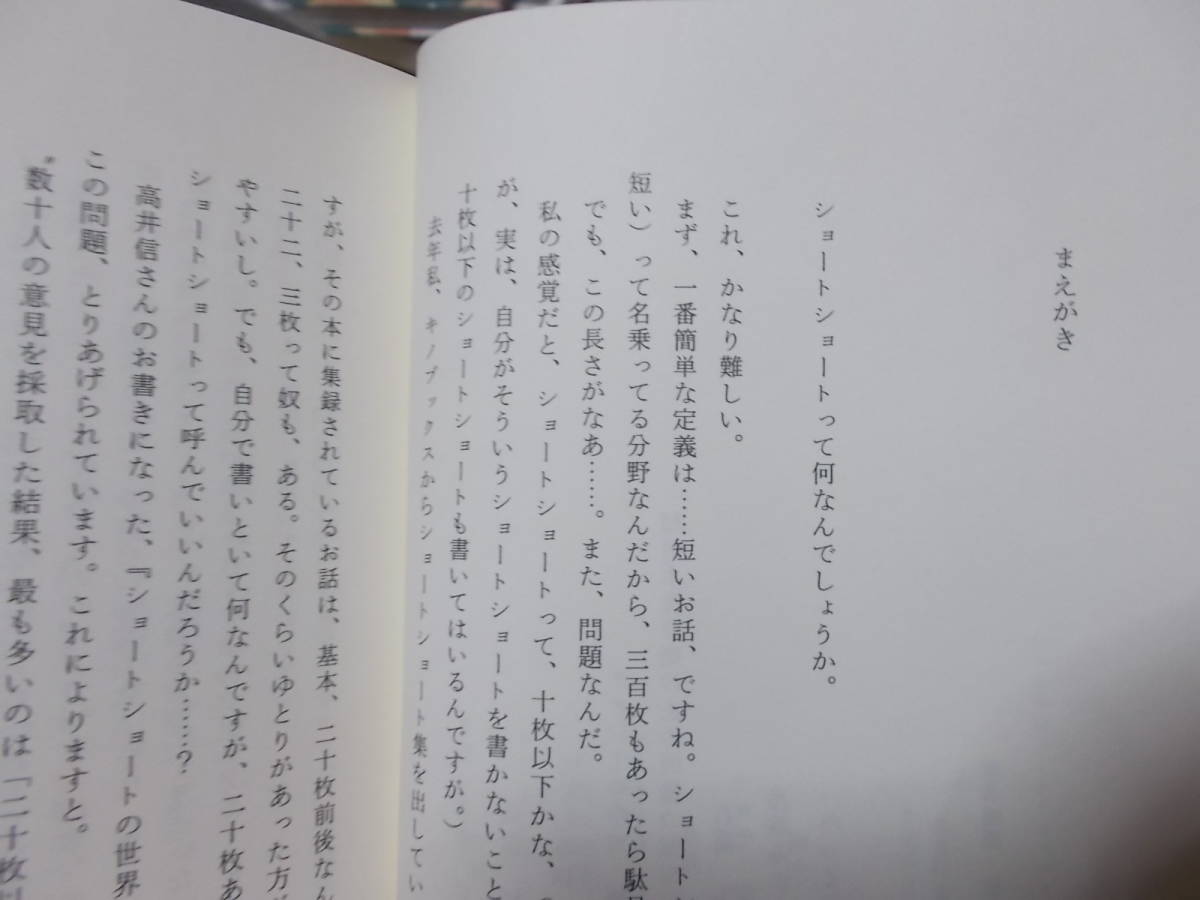 まえがき
ショートショートって何なんでしょうか。
これ、かなり難しい。
まず、一番簡単な定義は……短いお話、ですね。ショート
短い）って名乗ってる分野なんだから、三百枚もあったら駄
でも、この長さがなあ……。また、問題なんだ。
私の感覚だと、ショートショートって、十枚以下かな、
が、実は、自分がそういうショートショートを書かないこと
十枚以下のショートショートも書いてはいるんですが。）
去年私、キノブックスからショートショート集を出してい
すが、その本に集録されているお話は、基本、二十枚前後なん
二十二、三枚って奴も、ある。そのくらいゆとりがあった方が
やすいし。でも、自分で書いといて何なんですが、二十枚あ
ショートショートって呼んでいいんだろうか……？
高井信さんのお書きになった、『ショートショートの世界
この問題、とりあげられています。これによりますと。
〝数十人の意見を採取した結果、最も多いのは「二十枚